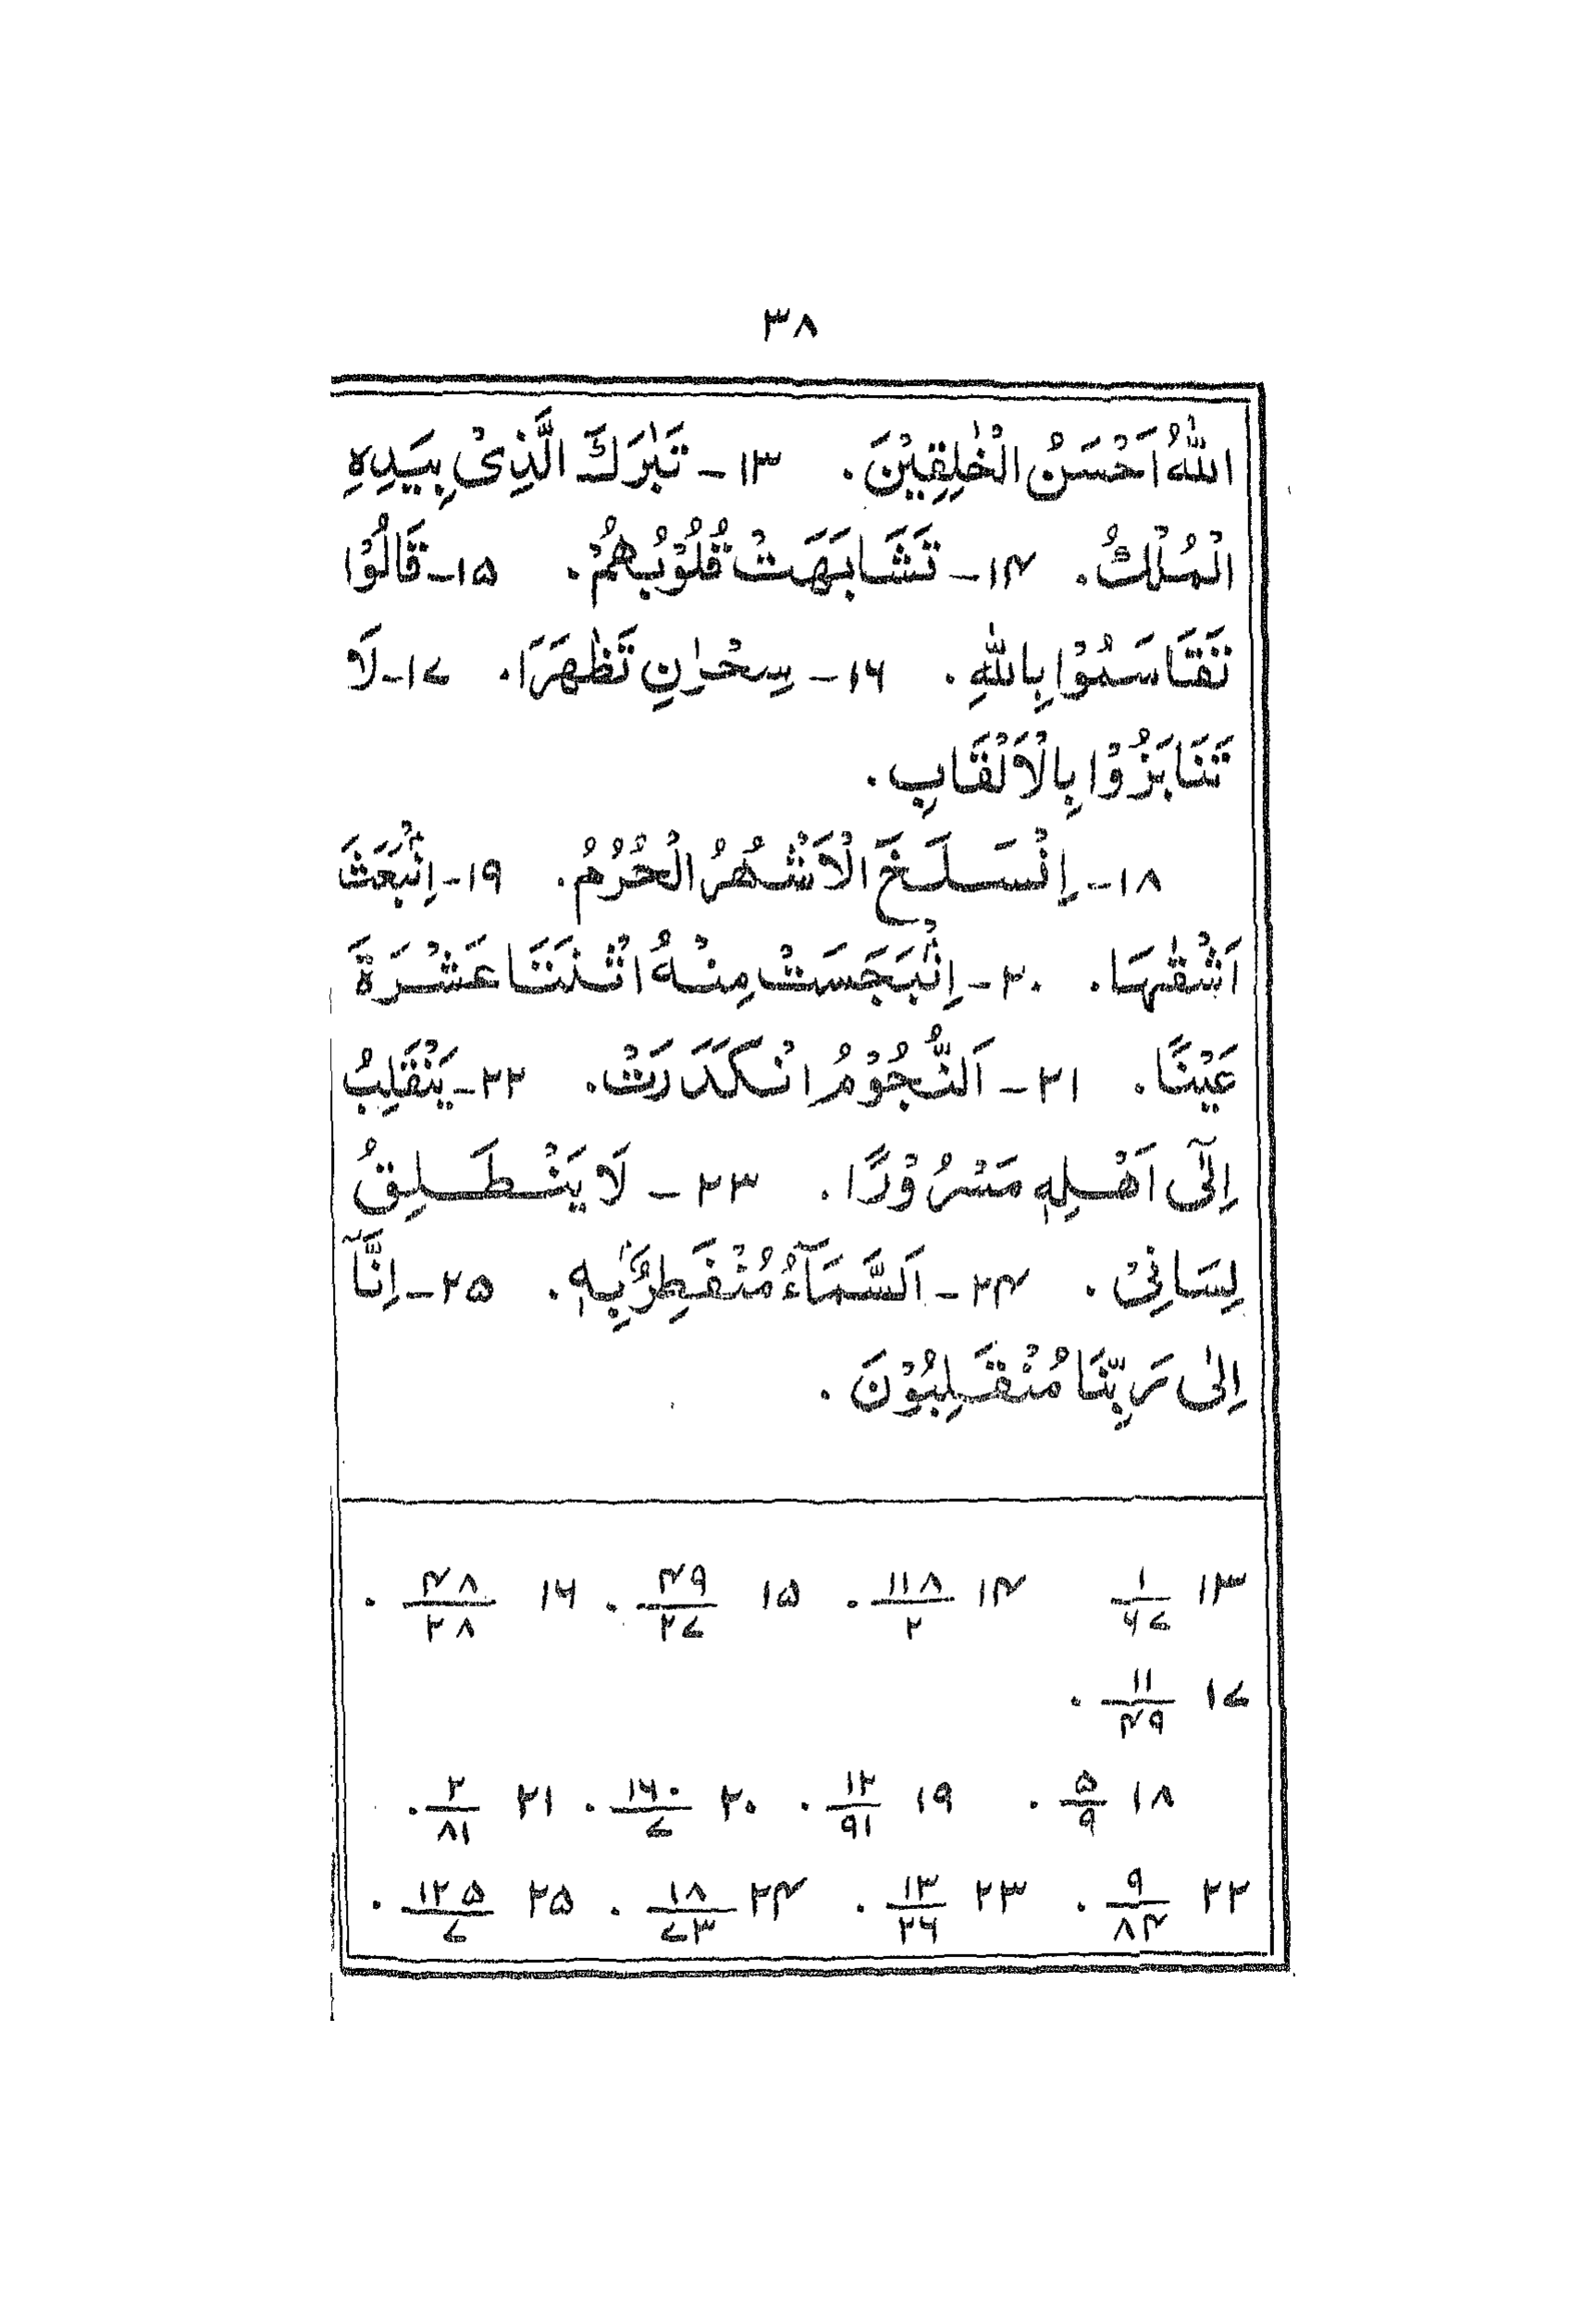 ۳۸
اللّٰهُ اَحْسَنُ الْخٰلِقِيْنَ. ۱۳- تَبٰرَكَ الَّذِىْ بِيَدِهِ
الْمُلْكُ. ۱۴- تَشَابَهَتْ قُلُوْبُهُمْ. ۱۵- قَالُوْا
تَقَاسَمُوْا بِاللّٰهِ. ۱۶- سِحْرٰنِ تَظٰهَرَا. ۱۷- لَا
تَنَابَزُوْا بِالْاَلْقَابِ.
۱۸- اِنْسَلَخَ الْاَشْهُرُ الْحُرُمُ. ۱۹- اِنْۢبَعَثَ
اَشْقٰىهَا. ۲۰- اِنْۢبَجَسَتْ مِنْهُ اثْنَتَا عَشْرَةَ
عَيْنًا. ۲۱- اَلنُّجُوْمُ انْكَدَرَتْ. ۲۲- يَنْقَلِبُ
اِلٰٓى اَهْلِهٖ مَسْرُوْرًا. ۲۳- لَا يَنْطَلِقُ
لِسَانِىْ. ۲۴- اَلسَّمَآءُ مُنْفَطِرٌۢ بِهٖ. ۲۵- اِنَّآ
اِلٰى رَبِّنَا مُنْقَلِبُوْنَ.
۱۳ ۱/۶۷ ۱۴ ۱۱۸/۲. ۱۵ ۴۹/۲۷. ۱۶ ۴۸/۲۸.
۱۷ ۱۱/۴۹.
۱۸ ۵/۹. ۱۹ ۱۲/۹۱. ۲۰ ۱۶۰/۷. ۲۱ ۲/۸۱.
۲۲ ۹/۸۴. ۲۳ ۱۳/۲۶. ۲۴ ۱۸/۷۳. ۲۵ ۱۲۵/۷.